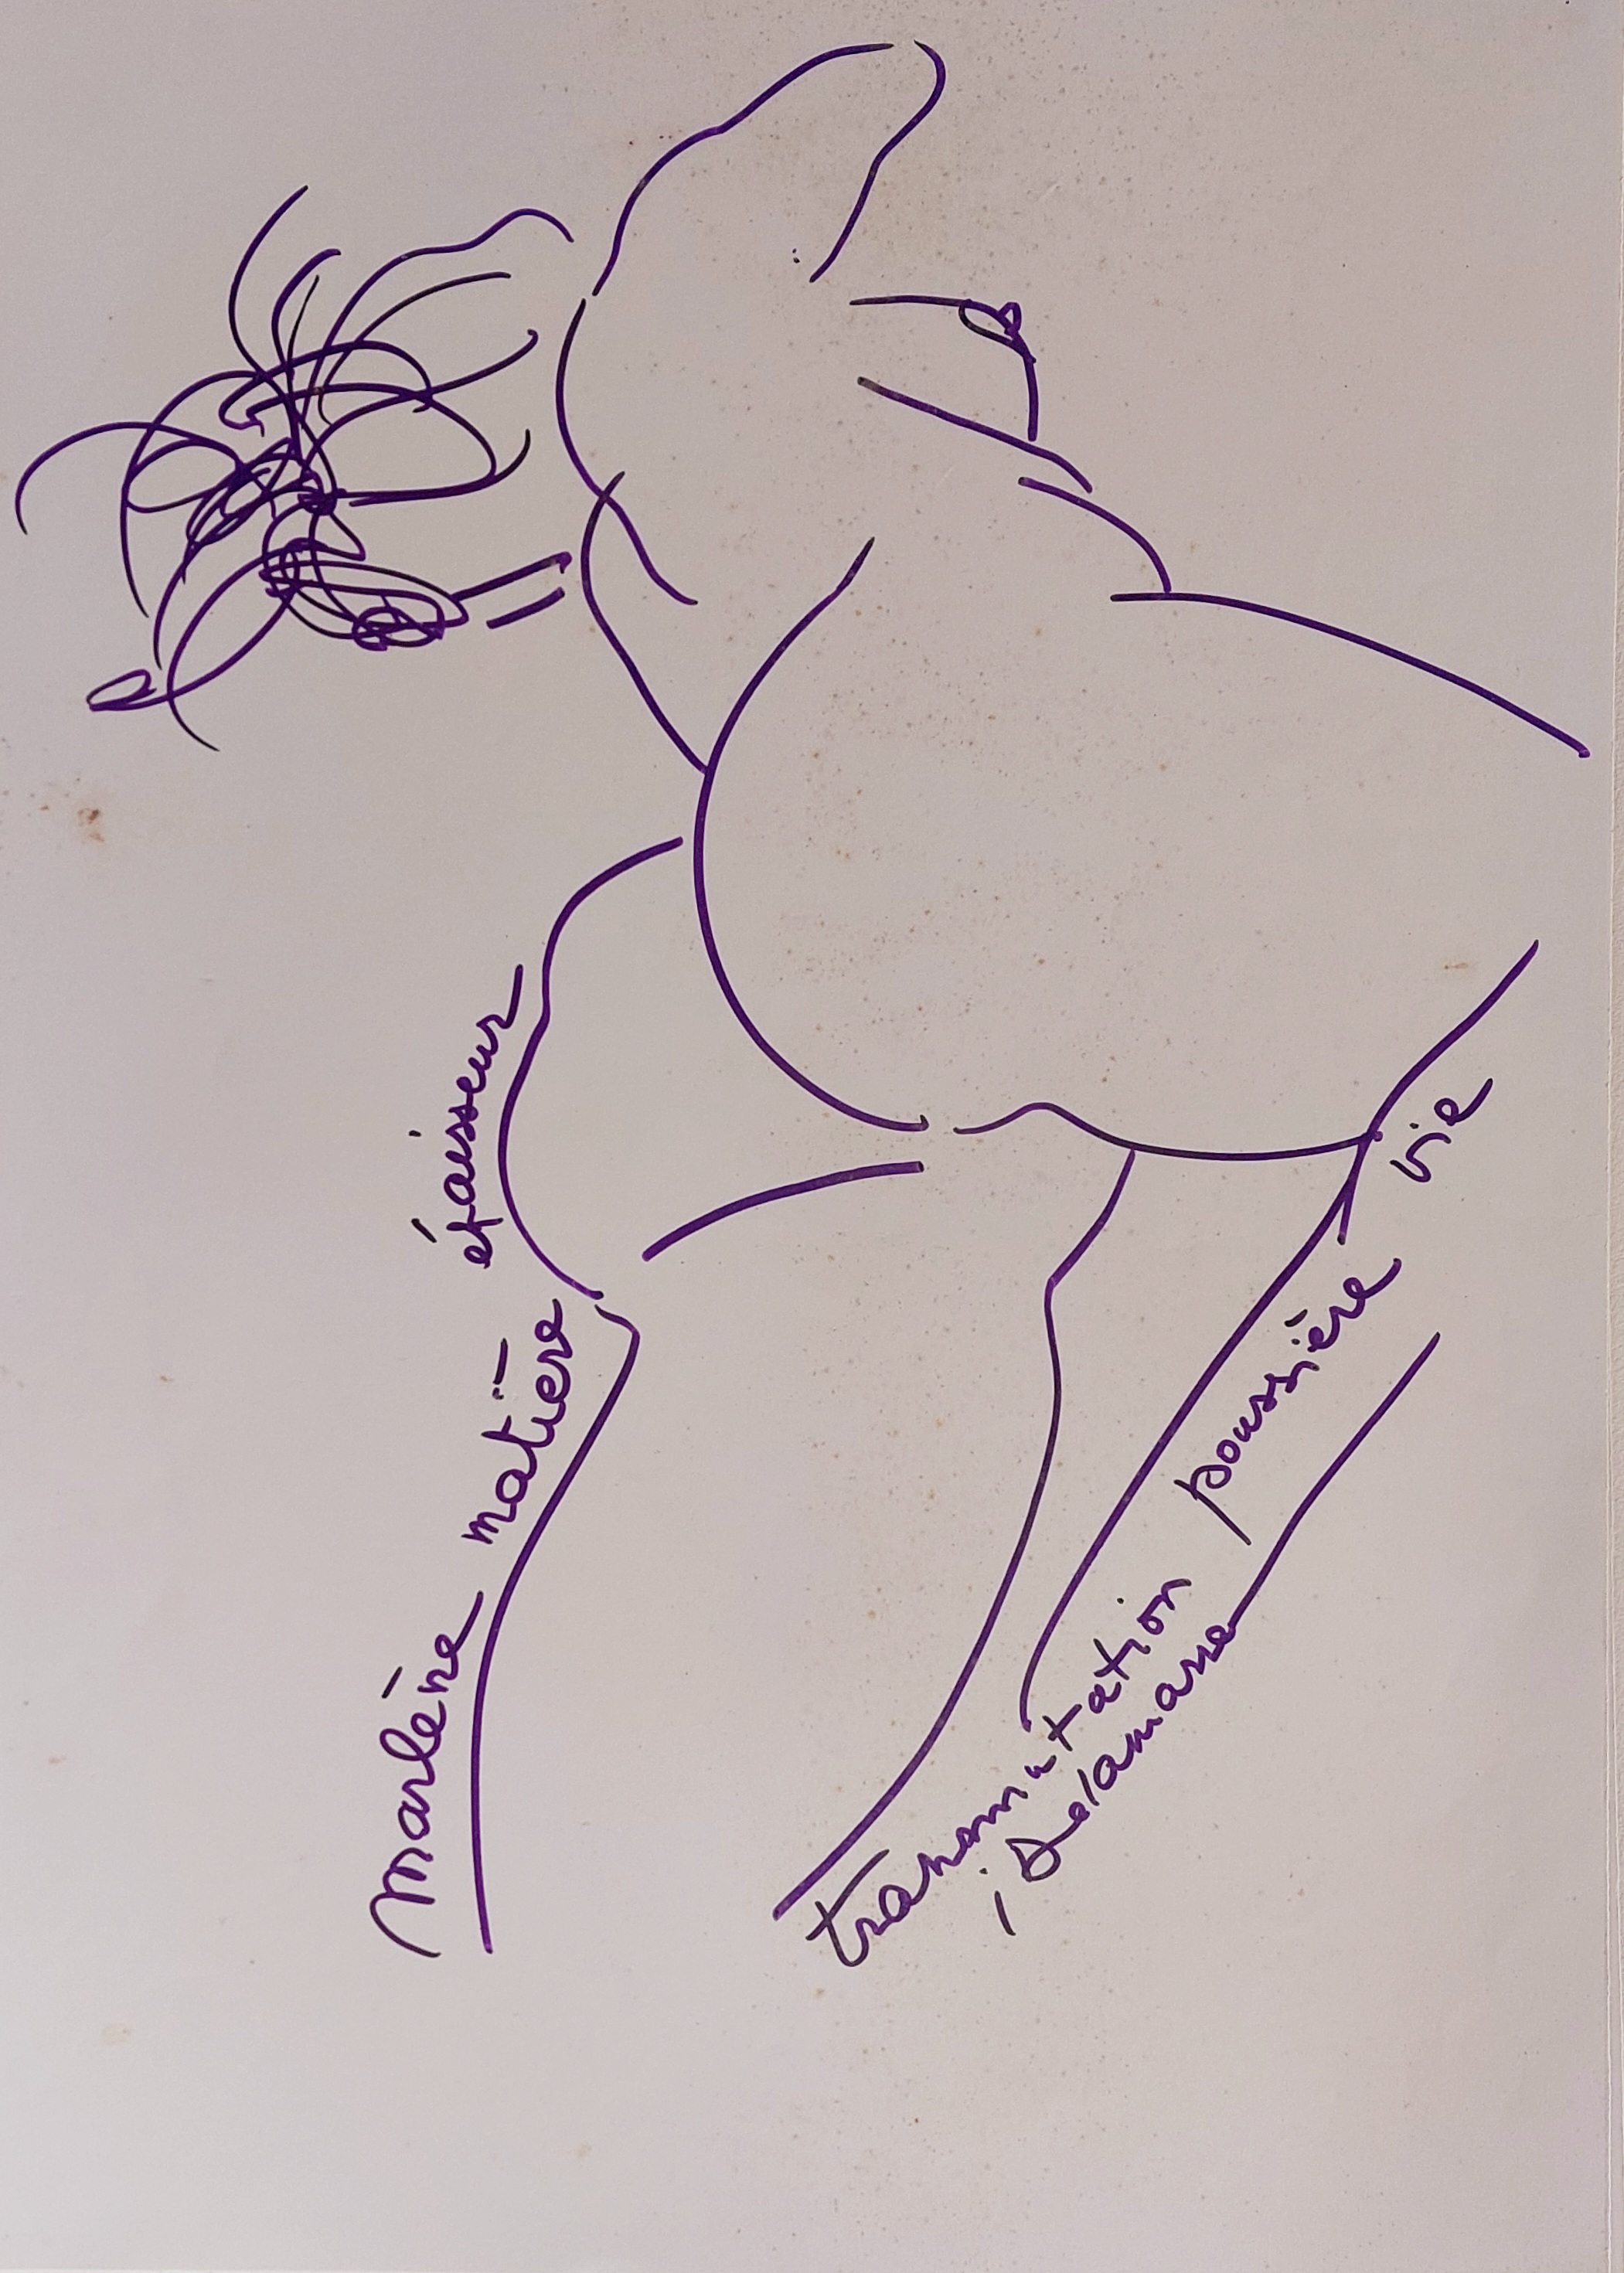 Marlène matière épaisseur
transmutation poussière vie
i Delamare